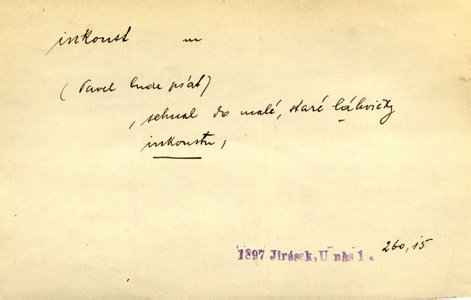 inkoust m
(Pavel bude psát)
, sehnal do malé, staré láhvičky
inkoustu,
1897 Jirásek, U nás 1. 260,15